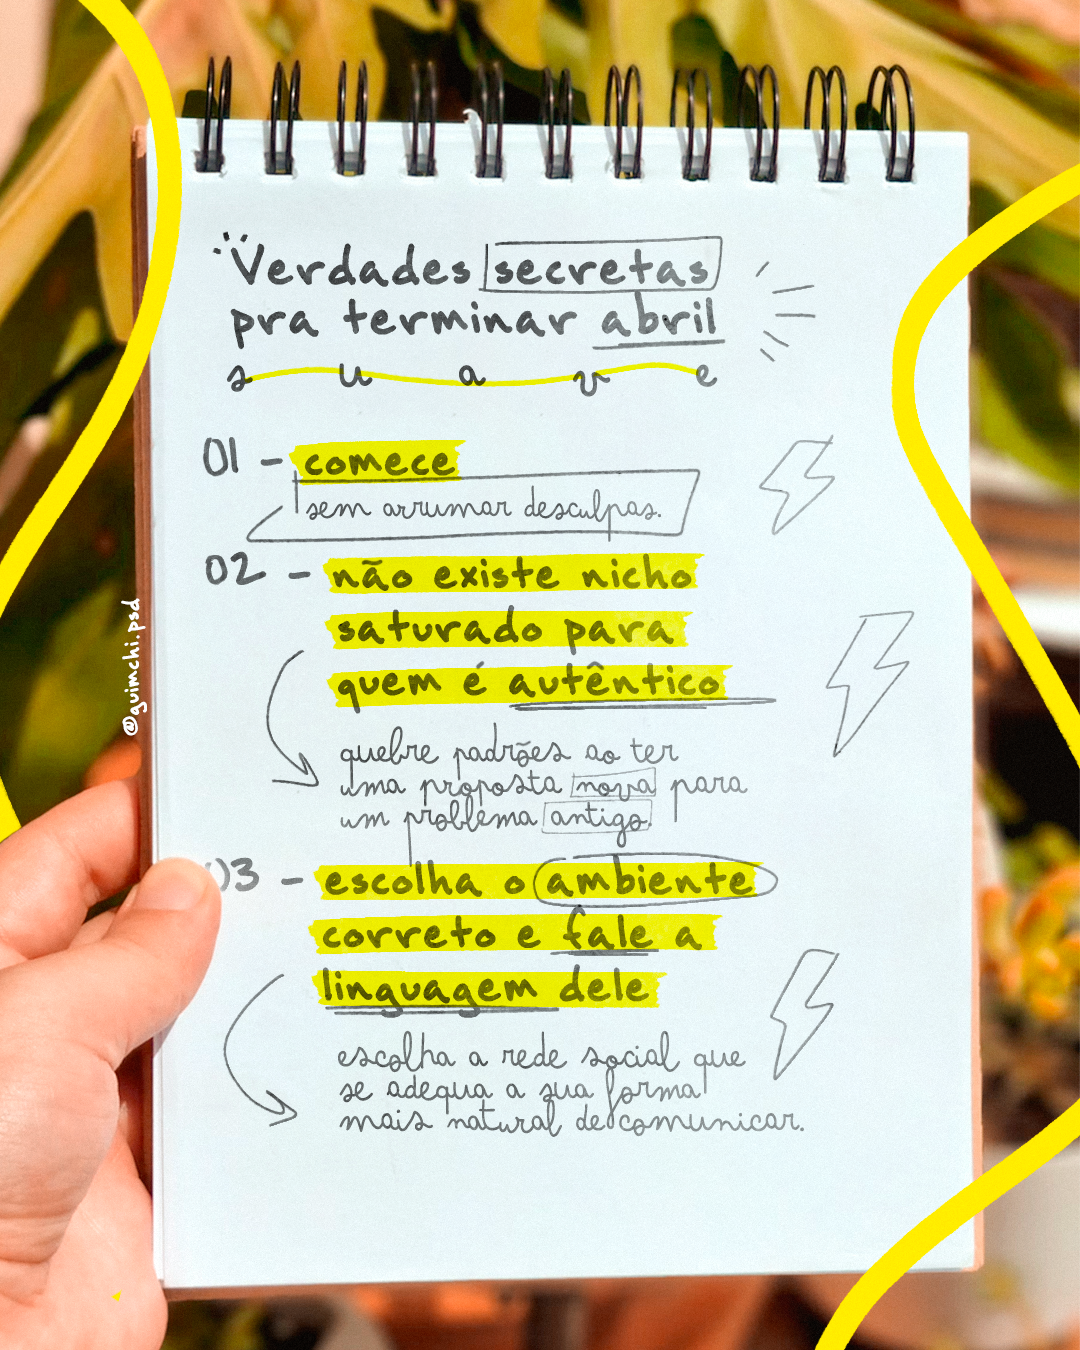 Verdades secretas
pra terminar abril
suave
01 - comece
sem arrumar desculpas.
02 - não existe nicho
saturado para
quem é autêntico
quebre padrões ao ter
uma proposta nova para
um problema antigo.
03 - escolha o ambiente
correto e fale a
linguagem dele
escolha a rede social que
se adequa a sua forma
mais natural de comunicar.
@guimchi.psd